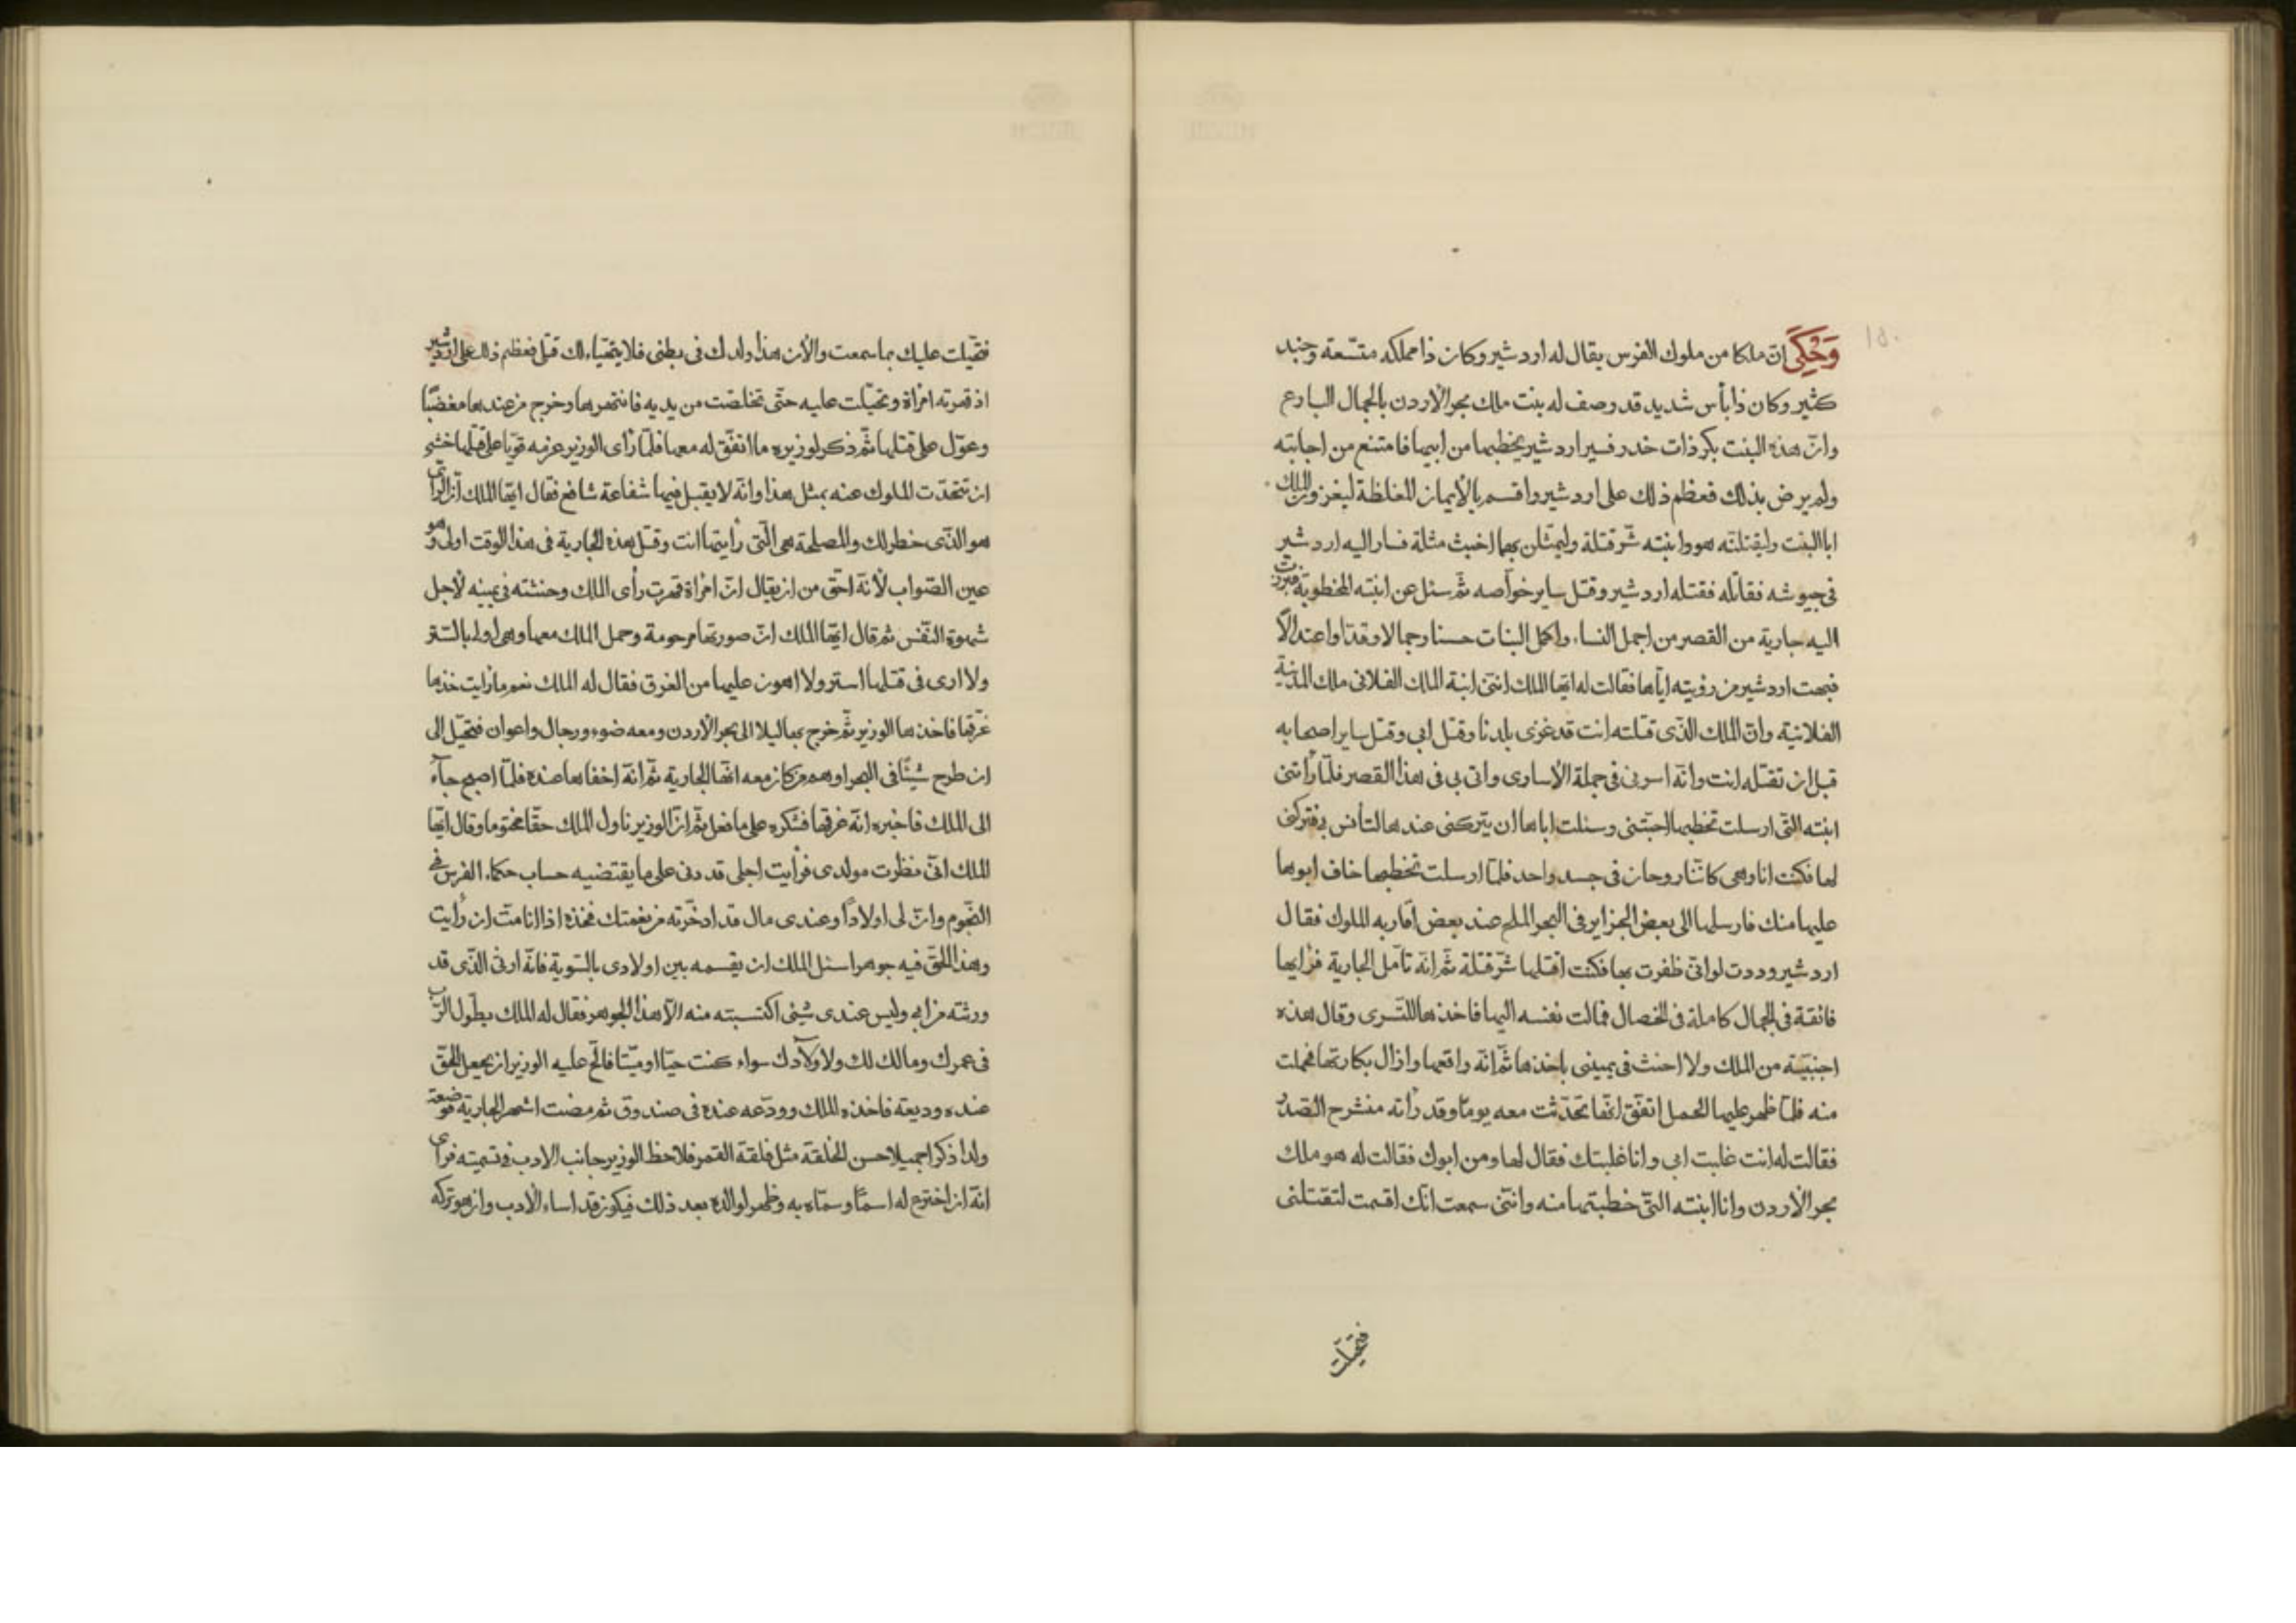 وَحُكِيَ ان ملكا من ملوك الفرس يقال له اردشير وكان ذا مملكه متسّعة وجند
كثير وكان ذا بأس شديد قد وصف له بنت ملك بحر الأردن بالجمال البارع
وانّ هذه البنت بكر ذات خدر فسير اردشير يخطبها من ابيها فامتنع من اجابته
ولم يرض بذلك فعظم ذلك على اردشير واقسم بالأيمان المغلظة ليغزونّ الملك
ابا البنت وليقتلنّه هو وابنته شرّ قتلة وليمثلن بهما اخبث مثلة فسار اليه اردشير
فى جيوشه فقاتله فقتله اردشير وقتل ساير خواصه ثمّ سئل عن ابنته المخطوبة فبرزت
اليه جارية من القصر من اجمل النساء واكمل البنات حسنا وجمالا وقدّا واعتدالاً
فبهت اردشير من رؤيته ايّاها فقالت له ايّها الملك انّنى ابنة الملك الفلانى ملك المدينة
الفلانية وانّ الملك الذّى قتلته انت قد غزى بلدنا وقتل ابى وقتل ساير اصحابه
قبل ان تقتله انت وانّه اسرنى فى جملة الأسارى واتى بى فى هذا القصر فلمّا رأتنى
ابنته التّى ارسلت تخطبها احبّتنى وسئلت اباها ان يتركنى عندها لتأنس بى فتركنى
لها فكنت انا وهى كانّنا روحان فى جسد واحد فلمّا ارسلت تخطبها خاف ابوها
عليها منك فارسلها الى بعض الجزاير فى البحر الملح عند بعض اقاربه الملوك فقال
اردشير وددت لو انّى ظفرت بها فكنت اقتلها شرّ قتلة ثمّ انّه تأمّل الجارية فرأيها
فائقة فى الجمال كاملة فى الخصال فمالت نفسه اليها فاخذها للتسرى وقال هذه
اجنبيّة من الملك ولا احنث فى يمينى باخذها ثمّ انّه واقعها وازال بكارتها فحملت
منه فلمّا ظهر عليها الحمل اتفّق انّها تحدّثت معه يوما وقد رأته منشرح الصّدر
فقالت له انت غلبت ابى وانا غلبتك فقال لها ومن ابوك فقالت له هو ملك
بحر الأردن وانا ابنته التّى خطبتها منه وانّنى سمعت انّك اقسمت لتقتلنى
فتحيّلت
فتحيّلت عليك بما سمعت والأن هذا ولدك فى بطنى فلا يتهيّاء لك قتلى فعظم ذلك على اردشير
اذ قهرته امرأة وتحيّلت عليه حتّى تخلصت من يديه فانتهرها وخرج من عندها مغضبًا
وعوّل على قتلها ثمّ ذكر لوزيره ما اتّفق له معها فلمّا رأى الوزير عزمه قويّا على قتلها خشى
ان تتحدّث الملوك عنه بمثل هذا وانّه لا يقبل فيها شفاعة شافع فقال ايّها الملك انّ الرأى
هو الذّى خطر لك والمصلحة هى الّتى رأيتها انت وقتل هذه الجارية فى هذا الوقت اولى وهو
عين الصّواب لأنّه احقّ من ان يقال انّ امرأة قهرت رأى الملك وحنثته فى يمينه لأجل
شهوة النّفس ثم قال ايّها الملك انّ صورتها مرحومة وحمل الملك معها وهى اولى بالستر
ولا ارى فى قتلها استر ولا اهون عليها من الغرق فقال له الملك نعم ما رايت خذها
غرّقها فاخذها الوزير ثمّ خرج بها ليلا الى بحر الأردن ومعه ضوء ورجال واعوان فتحيّل الى
ان طرح شيئًا فى البحر اوهم من كان معه انّها الجارية ثمّ انّه اخفاها عنده فلمّا اصبح جآء
الى الملك فاخبره انّه غرقها فشكره على ما فعل ثمّ انّ الوزير ناول الملك حقّا مختوما وقال ايّها
الملك انّى نظرت مولدى فرأيت اجلى قد دنى على ما يقتضيه حساب حكماء الفرس فى
النّجوم وانّ لى اولادًا وعندى مال قد ادخّرته من نعمتك فخذه اذا انا متّ ان رأيت
وهذا الحقّ فيه جوهر اسئل الملك ان يقسمه بين اولادى بالسّوية فانّه ارثى الذّى قد
ورثته من ابى وليس عندى شيئ اكتسبته منه الّا هذا الجوهر فقال له الملك يطوّل الرّب
فى عمرك ومالك لك ولاولآدك سواء كنت حيّا او ميّتا فالحّ عليه الوزير ان يجعل الحقّ
عنده وديعة فاخذه الملك وودّعه عنده فى صندوق ثم مضت اشهر الجارية فوضعت
ولدا ذكرا جميلا حسن الخلقة مثل فلقة القمر فلاحظ الوزير جانب الادب فى تسميته فرأى
انّه ان اخترع له اسمًا وسمّاه به وظهر لوالده بعد ذلك فيكون قد اساء الأدب وان هو تركه